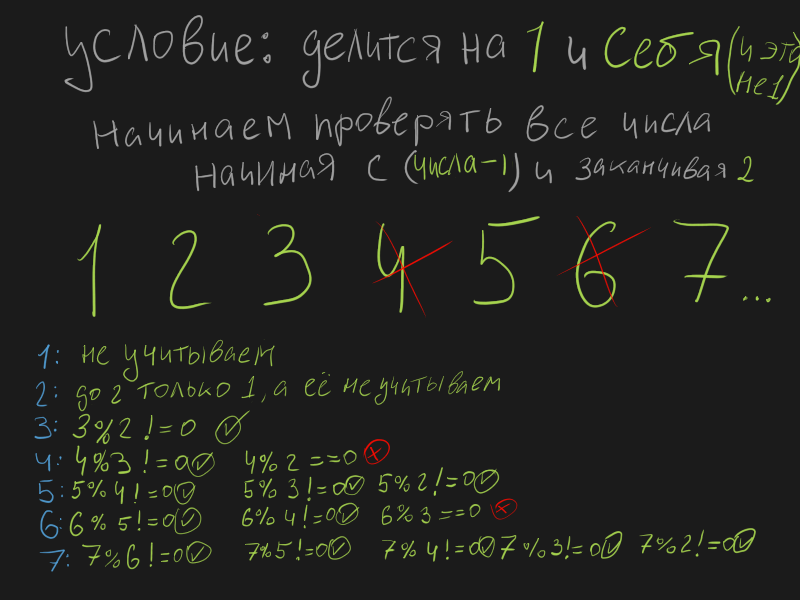 условие: делится на 1 и себя (и это не 1)
Начинаем проверять все числа
начиная с (числа-1) и заканчивая 2
1 2 3 4 5 6 7...
1: не учитываем
2: до 2 только 1, а её не учитываем
3: 3%2!=0
4: 4%3!=0 4%2==0
5: 5%4!=0 5%3!=0 5%2!=0
6: 6%5!=0 6%4!=0 6%3==0
7: 7%6!=0 7%5!=0 7%4!=0 7%3!=0 7%2!=0